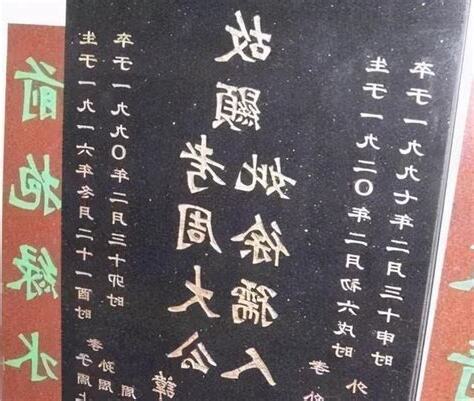 前抱绿水
生于一九一六年冬月二十一酉时
卒于一九九〇年二月三十卯时
孝子周上
孙周
周
故顯
考周大公諱
妣徐孺人
生于一九二〇年二月初六戌时
卒于一九九七年二月三十申时
孝
外
外